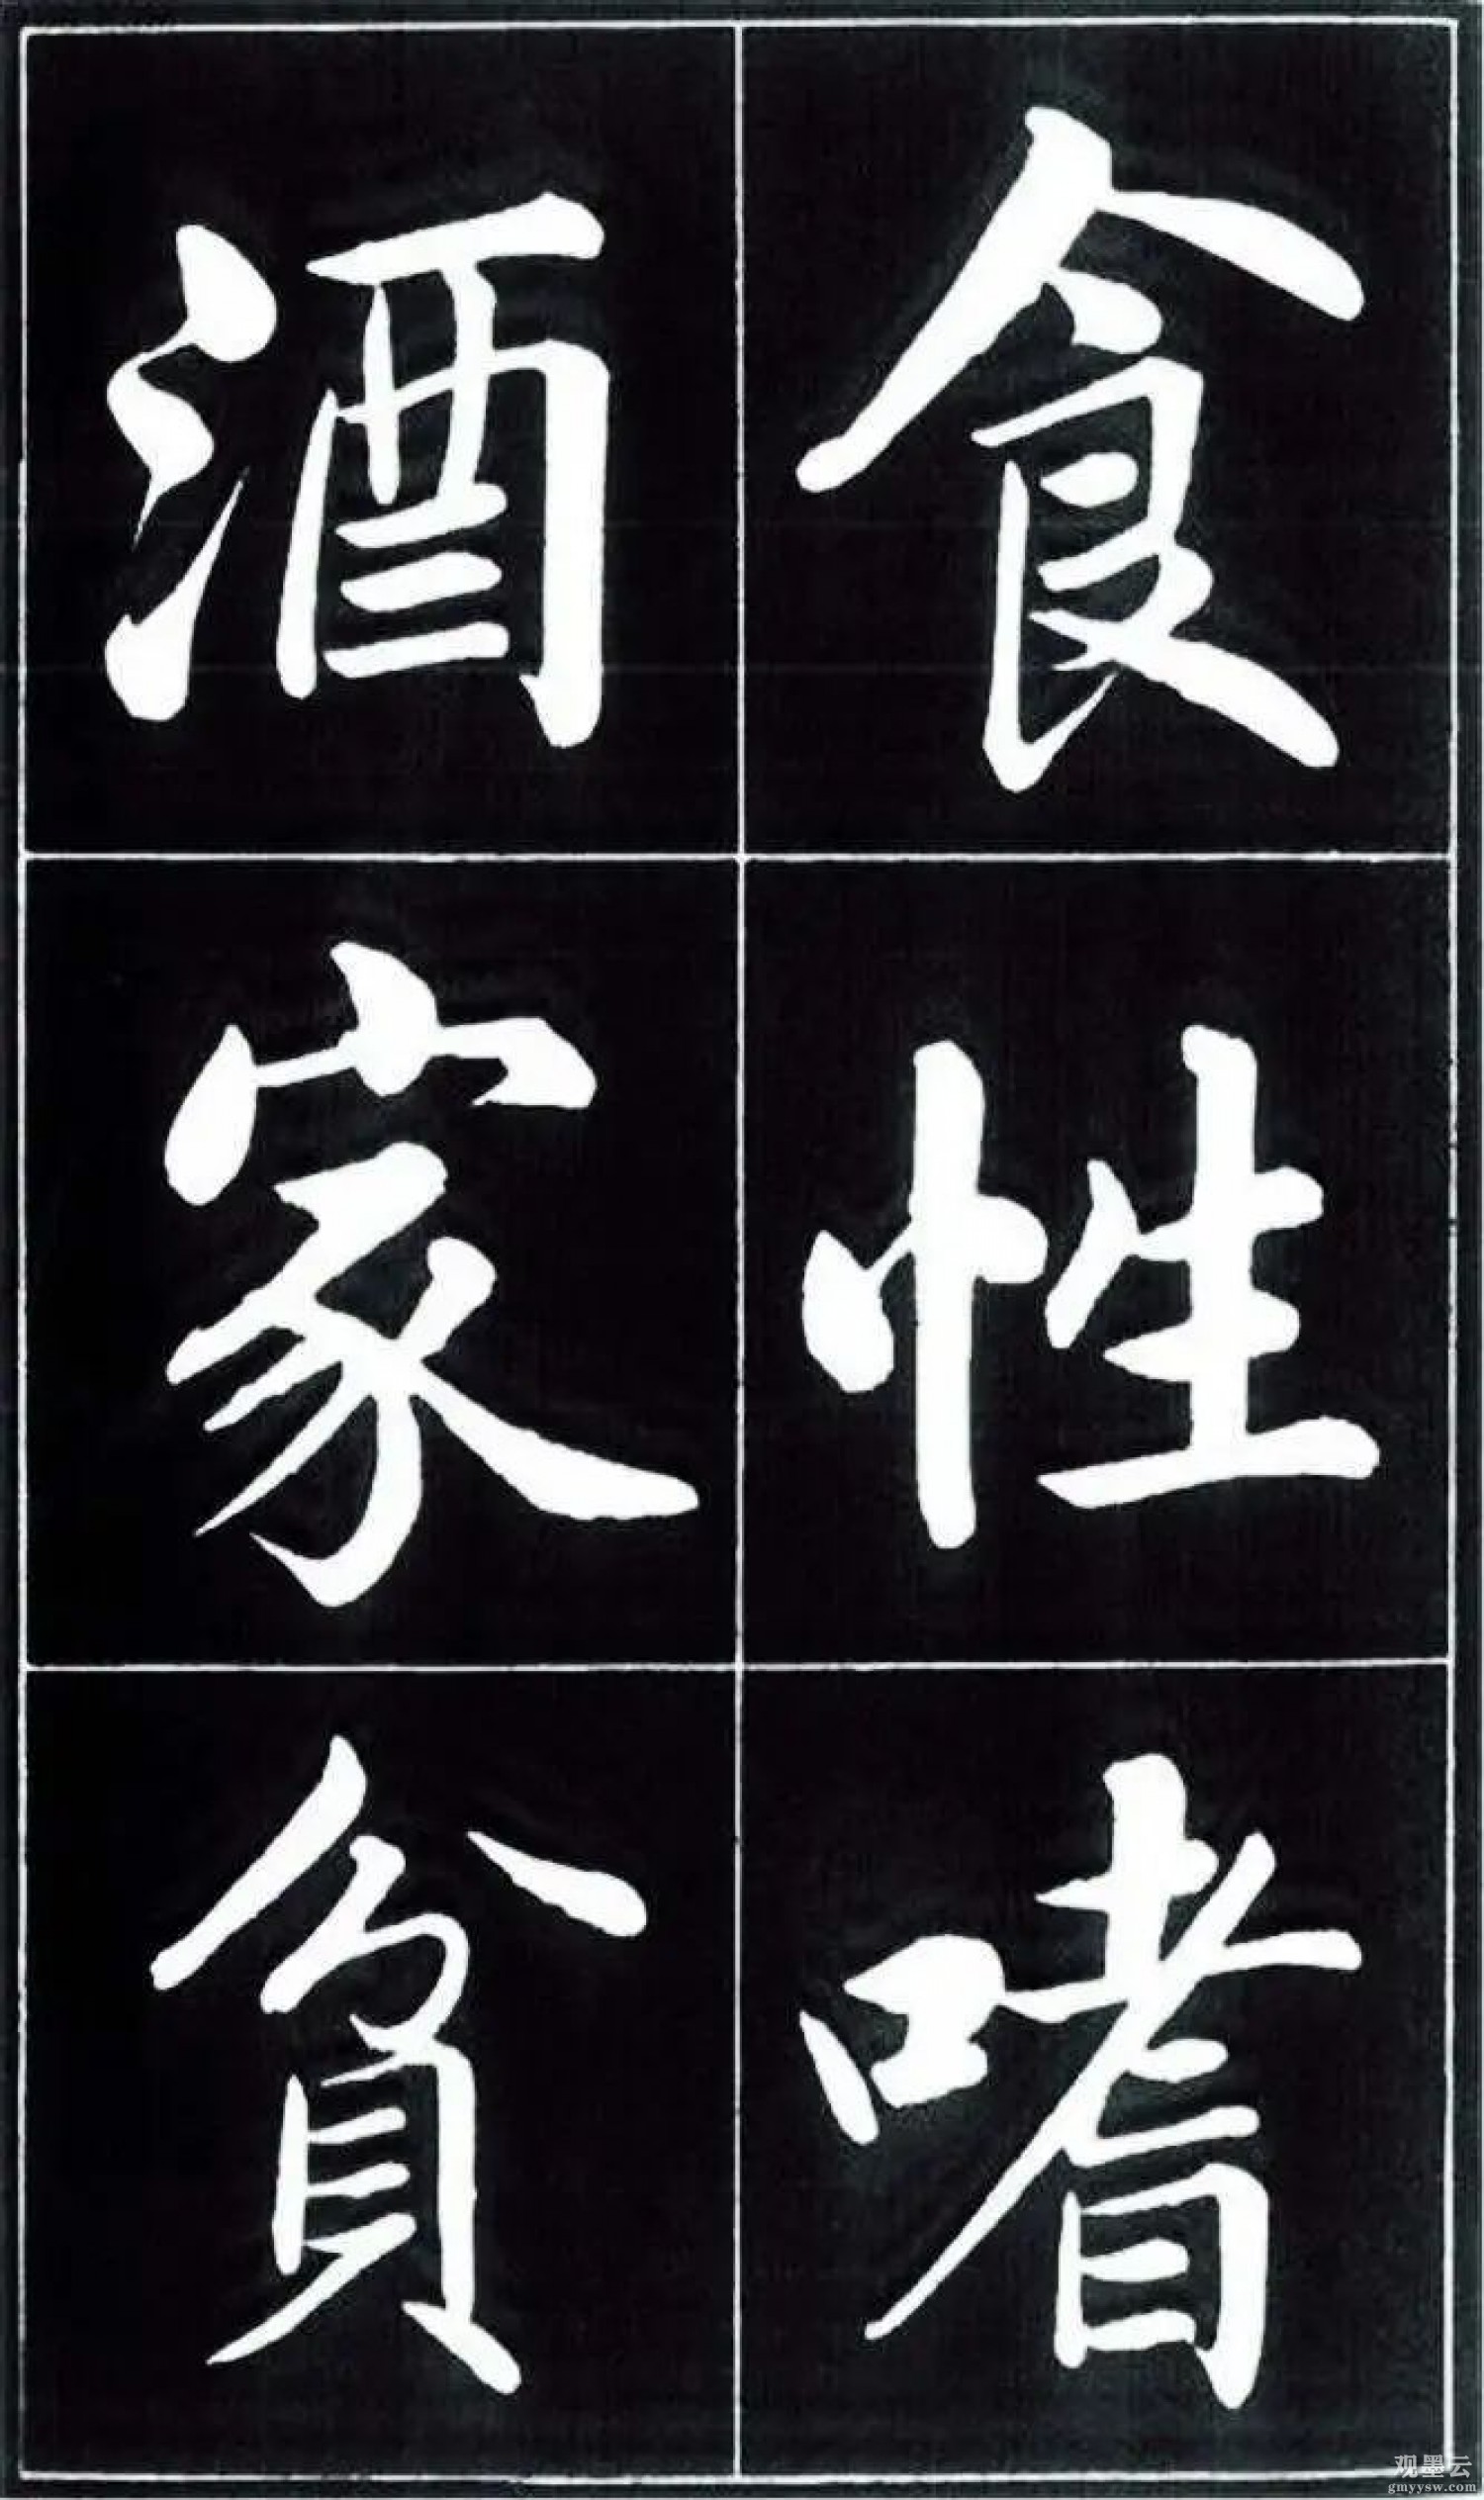 食性嗜
酒家貧
观墨云
gmyysw.com